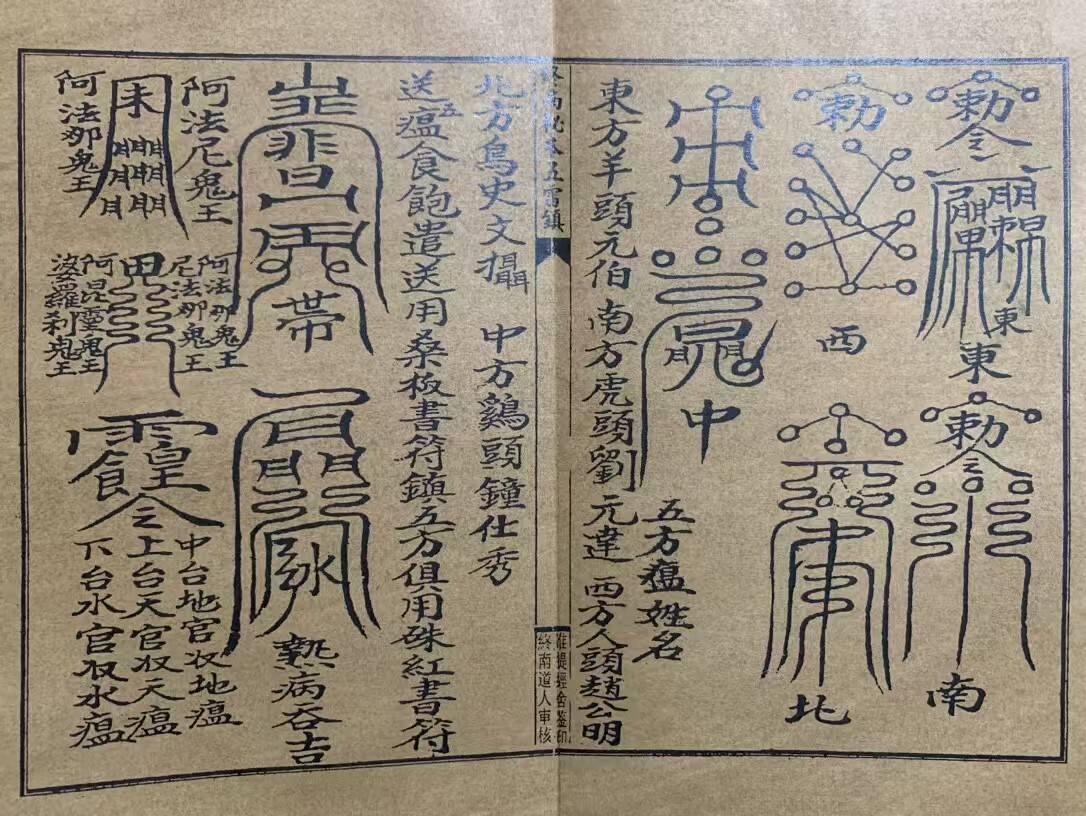 勅令
東
東
勅令
南
勅
西
北
中
五方瘟姓名
東方羊頭元伯 南方虎頭劉元達 西方人頭趙公明
準提經舍鑒印
終南道人審核
北方烏史文攝 中方鷄頭鐘仕秀
送五瘟食飽遣送用桑板書符鎮五方俱用硃紅書符
帶
熱病吞吉
阿法尼鬼王
阿法那鬼王
阿法那鬼王
尼法那鬼王
阿昆靈鬼王
波羅刹鬼王
中台地官收地瘟
上台天官收天瘟
下台水官收水瘟